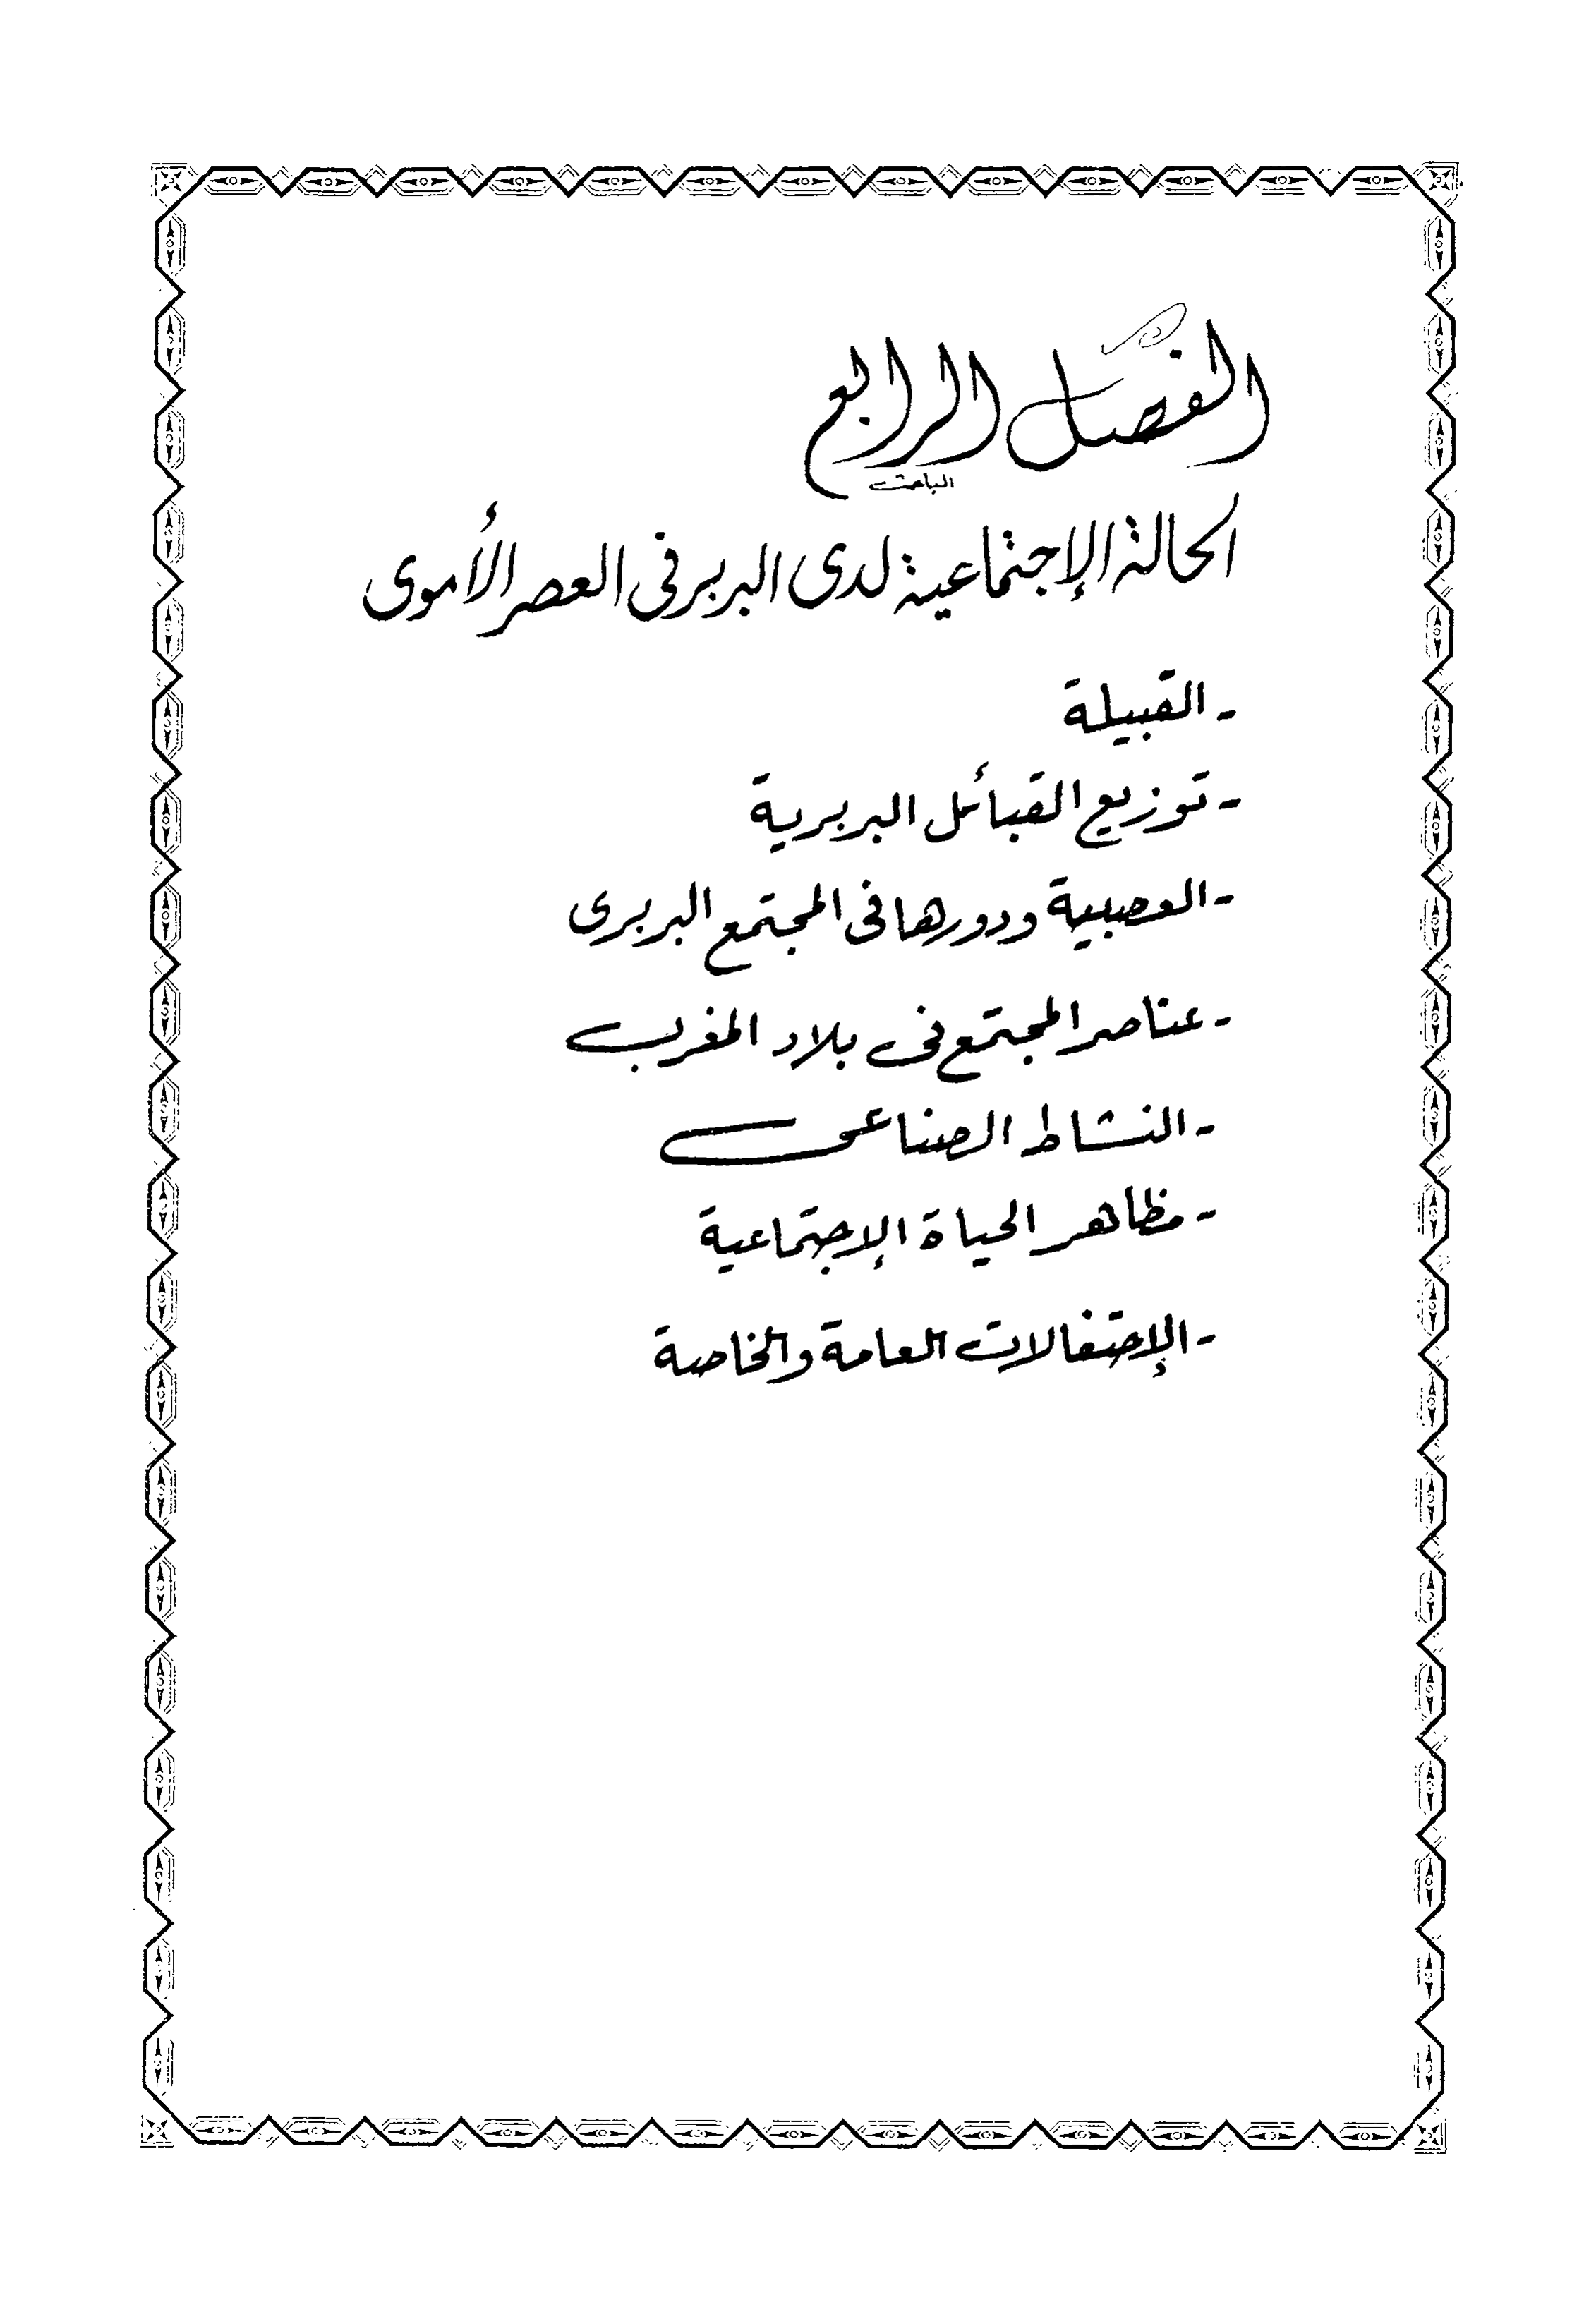 الفصل الرابع
الباحث
الحالة الإجتماعية لدى البربر فى العصر الأموى
- القبيلة
- توزيع القبائل البربرية
- العصبية ودورها فى المجتمع البربرى
- عناصر المجتمع فى بلاد المغرب
- النشاط الصناعى
- مظاهر الحياة الإجتماعية
- الإحتفالات العامة والخاصة